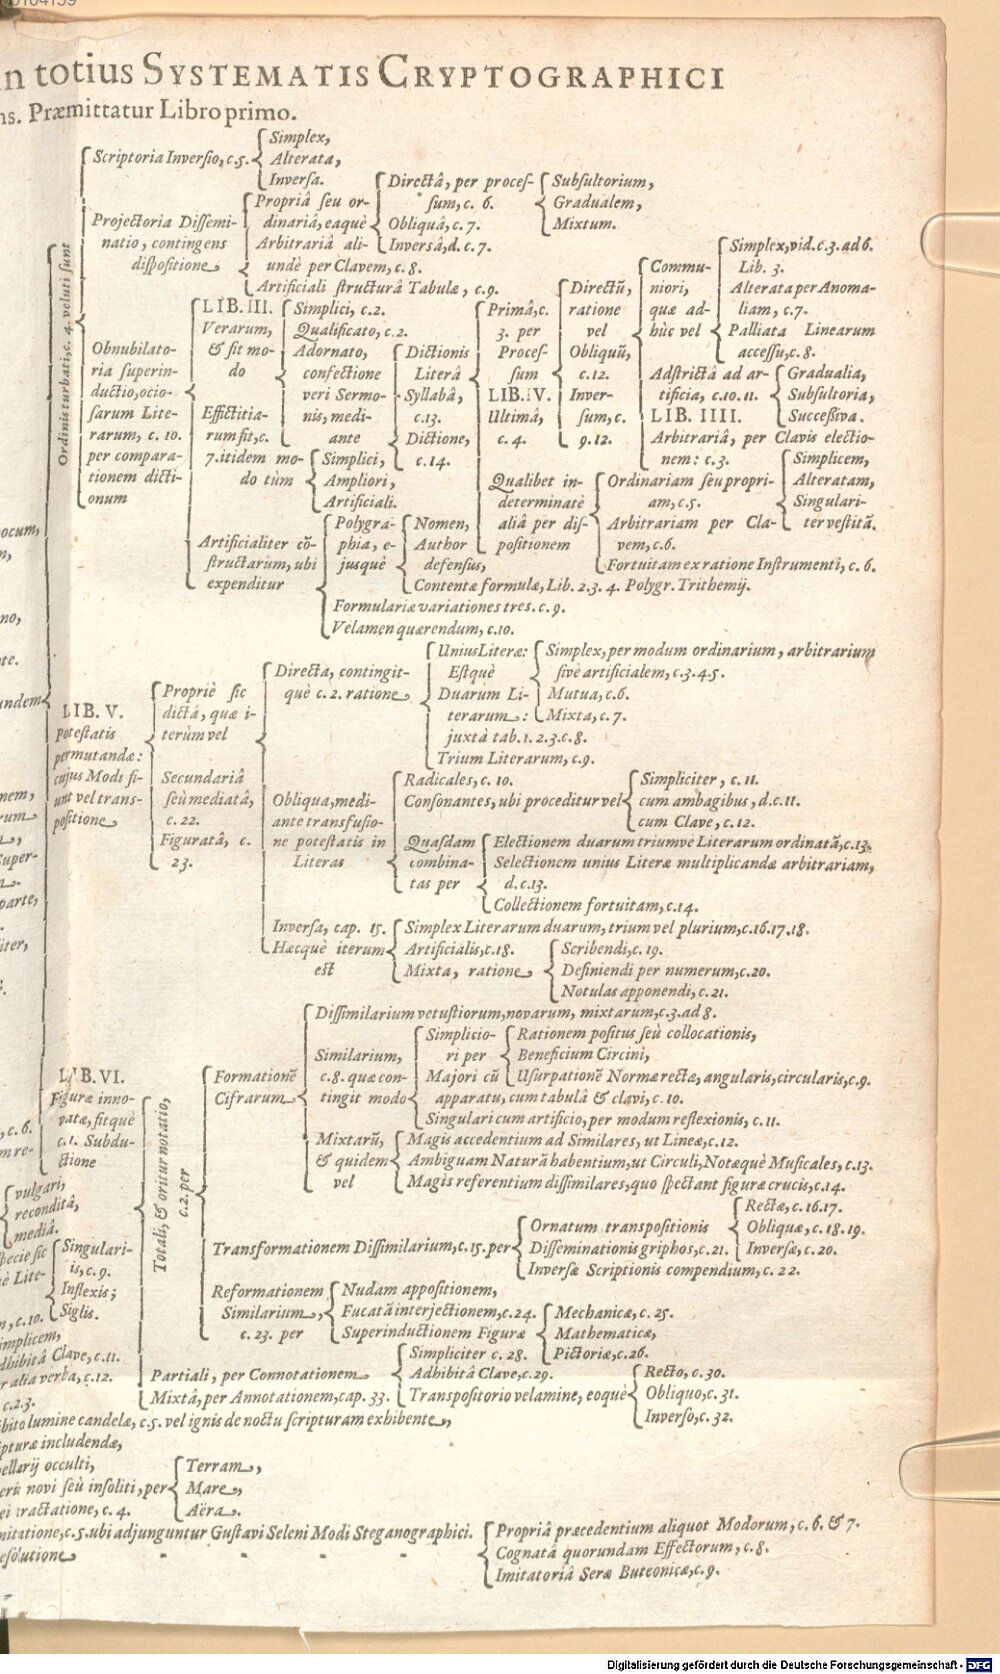 00104159
in totius SYSTEMATIS CRYPTOGRAPHICI
ns. Præmittatur Libro primo.
Ordinis turbati, c. 4. veluti sunt
Scriptoria Inversio, c. 5.
Simplex,
Alterata,
Inversa.
Projectoria Dissemi-
natio, contingens
dispositione
Propriâ seu or-
dinariâ, eaquè
Arbitrariâ ali-
undè per Clavem, c. 8.
Artificiali structurâ Tabulæ, c. 9.
Directâ, per proces-
sum, c. 6.
Obliquâ, c. 7.
Inversâ, d. c. 7.
Subsultorium,
Gradualem,
Mixtum.
Obnubilato-
ria superin-
ductio, ocio-
sarum Lite-
rarum, c. 10.
per compara-
tionem dicti-
onum
LIB. III.
Verarum,
& fit mo-
do
Effictitia-
rum fit, c.
7. itidem mo-
do tùm
Artificialiter cō-
structarum, ubi
expenditur
Simplici, c. 2.
Qualificato, c. 2.
Adornato,
confectione
veri Sermo-
nis, medi-
ante
Dictionis
Literâ
Syllabâ,
c. 13.
Dictione,
c. 14.
Simplici,
Ampliori,
Artificiali.
Polygra-
phia, e-
jusquè
Nomen,
Author
defensus,
Contentæ formulæ, Lib. 2. 3. 4. Polygr. Trithemij.
Formulariæ variationes tres. c. 9.
Velamen quærendum, c. 10.
Primâ, c.
3. per
Proces-
sum
LIB. IV.
Ultimâ,
c. 4.
Qualibet in-
determinatè
aliâ per dis-
positionem
Directū,
ratione
vel
Obliquū,
c. 12.
Inver-
sum, c.
9. 12.
Commu-
niori,
quæ ad-
hùc vel
Simplex, vid. c. 3. ad 6.
Lib. 3.
Alterata per Anoma-
liam, c. 7.
Palliata Linearum
accessu, c. 8.
Adstrictâ ad ar-
tificia, c. 10. 11.
LIB. IIII.
Arbitrariâ, per Clavis electio-
nem: c. 3.
Gradualia,
Subsultoria,
Successiva.
Ordinariam seu propri-
am, c. 5.
Arbitrariam per Cla-
vem, c. 6.
Fortuitam ex ratione Instrumenti, c. 6.
Simplicem,
Alteratam,
Singulari-
ter vestitā.
LIB. V.
potestatis
permutandæ:
cujus Modi fi-
unt vel trans-
positione
Propriè sic
dictâ, quæ i-
terùm vel
Secundariâ
seù mediatâ,
c. 22.
Figuratâ, c.
23.
Directa, contingit-
què c. 2. ratione
Unius Literæ:
Estquè
Duarum Li-
terarum:
juxtà tab. 1. 2. 3. c. 8.
Trium Literarum, c. 9.
Simplex, per modum ordinarium, arbitrarium
sivè artificialem, c. 3. 4. 5.
Mutua, c. 6.
Mixta, c. 7.
Obliqua, medi-
ante transfusio-
ne potestatis in
Literas
Radicales, c. 10.
Consonantes, ubi proceditur vel
Simpliciter, c. 11.
cum ambagibus, d. c. 11.
cum Clave, c. 12.
Quasdam
combina-
tas per
Electionem duarum triumvè Literarum ordinatā, c. 13.
Selectionem unius Literæ multiplicandæ arbitrariam,
d. c. 13.
Collectionem fortuitam, c. 14.
Inversa, cap. 15.
Hæcquè iterum
est
Simplex Literarum duarum, trium vel plurium, c. 16. 17. 18.
Artificialis, c. 18.
Mixta, ratione
Scribendi, c. 19.
Definiendi per numerum, c. 20.
Notulas apponendi, c. 21.
LIB. VI.
Figuræ inno-
vatæ, fitquè
c. 1. Subdu-
ctione
Totali, & oritur notatio,
c. 2. per
Formationē
Cifrarum
Dissimilarium vetustiorum, novarum, mixtarum, c. 3. ad 8.
Similarium,
c. 8. quæ con-
tingit modo
Simplicio-
ri per
Rationem positus seù collocationis,
Beneficium Circini,
Usurpationē Normæ rectæ, angularis, circularis, c. 9.
Majori cū
apparatu, cum tabulâ & clavi, c. 10.
Singulari cum artificio, per modum reflexionis, c. 11.
Mixtarū,
& quidem
vel
Magis accedentium ad Similares, ut Lineæ, c. 12.
Ambiguam Naturā habentium, ut Circuli, Notæquè Musicales, c. 13.
Magis referentium dissimilares, quo spectant figuræ crucis, c. 14.
Transformationem Dissimilarium, c. 15. per
Ornatum transpositionis
Disseminationis griphos, c. 21.
Inversæ Scriptionis compendium, c. 22.
Rectæ, c. 16. 17.
Obliquæ, c. 18. 19.
Inversæ, c. 20.
Reformationem
Similarium,
c. 23. per
Nudam appositionem,
Fucatā interjectionem, c. 24.
Superinductionem Figuræ
Mechanicæ, c. 25.
Mathematicæ,
Pictoriæ, c. 26.
Partiali, per Connotationem
Simpliciter c. 28.
Adhibitâ Clave, c. 29.
Transpositorio velamine, eoquè
Recto, c. 30.
Obliquo, c. 31.
Inverso, c. 32.
Mixtâ, per Annotationem, cap. 33.
ocum,
n,
no,
te.
undem
nem,
rum
Super-
parte,
iter,
, c. 6.
m re-
vulgari,
reconditâ,
mediâ.
pecie sic
è Lite-
Singulari-
is, c. 9.
Inflexis;
Siglis.
n, c. 10.
implicem,
dhibitâ Clave, c. 11.
r alia verba, c. 12.
c. 23.
ibito lumine candelæ, c. 5. vel ignis de noctu scripturam exhibente,
ipturæ includendæ,
ellarij occulti,
erū novi seù insoliti, per
Terram,
Mare,
Aëra.
ei tractatione, c. 4.
nitatione, c. 5. ubi adjunguntur Gustavi Seleni Modi Steganographici.
esolutione
Propriâ præcedentium aliquot Modorum, c. 6. & 7.
Cognatâ quorundam Effectorum, c. 8.
Imitatoriâ Seræ Buteonicæ, c. 9.
Digitalisierung gefördert durch die Deutsche Forschungsgemeinschaft - DFG